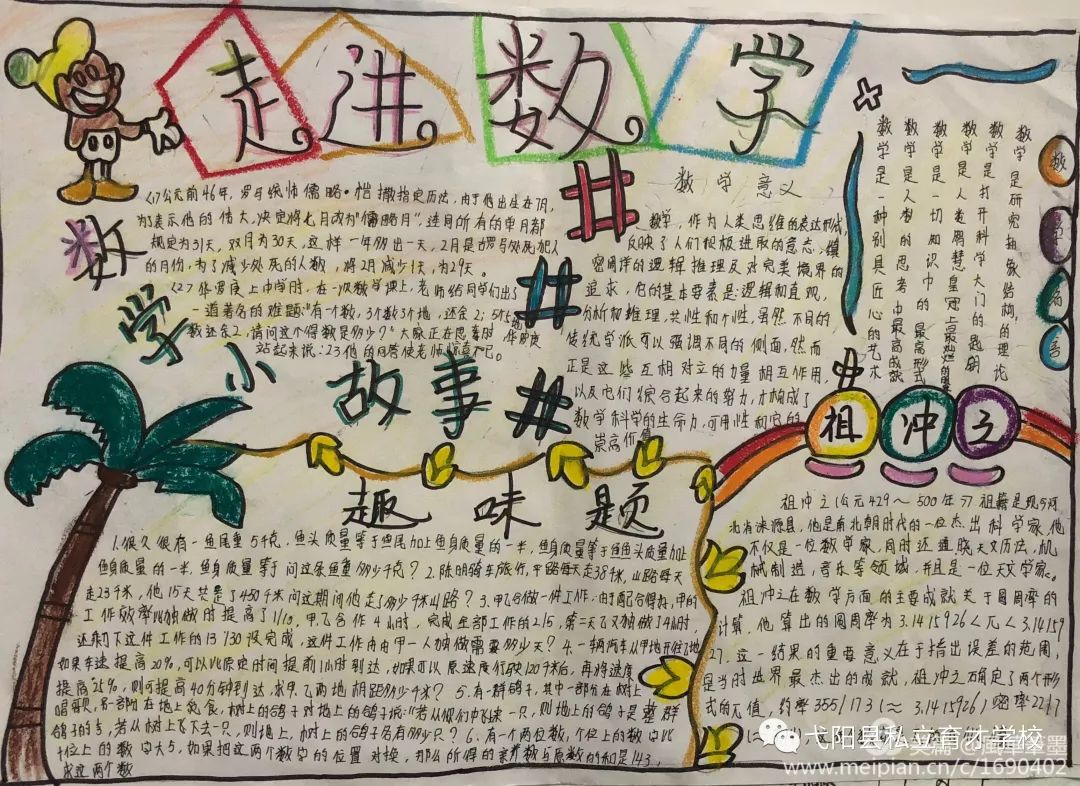 走进数学
数学小故事
<17公元前46年,罗马统帅儒略·恺撒指定历法,由于他出生在7月,
为3表示他的伟大,决定将七月改为"儒略月",连同所有的单月都
规定为31天,双月为30天,这样一年多出一天,2月是古罗马处死犯人
的月份,为了减少处死的人数,将2月减少1天,为29天。
<27华罗庚上中学时,在一次数学课上,老师给同学们出3
一道著名的难题:"有个数,3个数3个地,还余2;5个
数还余2,请问这个得数是多少?大家正在思考时,华罗庚
站起来说:23他的回答使老师惊喜不已。
数学意义
数学,作为人类思维的表达形式,
反映了人们积极进取的意志,缜
密周详的逻辑推理及对完美境界的
追求,它的基本要素是:逻辑和直观,
分析和推理,共性和个性,虽然不同的
传统学派可以强调不同的侧面,然而
正是这些互相对立的力量相互作用,
以及它们综合起来的努力,才构成了
数学科学的生命力,可用性和它的
崇高价值
数学名言
数学是研究抽象结构的理论
数学是打开科学大门的钥匙
数学是人类智慧皇冠上最灿烂的明珠
数学是一切知识中的最高形式
数学是人类的思考中最高成就
数学是一种别具匠心的艺术
祖冲之
祖冲之(公元429~500年)祖籍是现今河
北省涞源县,他是南北朝时代的一位杰出科学家,他
不仅是一位数学家,同时还通晓天文历法,机
械制造,音乐等领域,并且是一位天文学家。
祖冲之在数学方面的主要成就关于圆周率的
计算,他算出的圆周率为3.1415926<π<3.14159
27,这一结果的重要意义在于指出误差的范围,
是当时世界最杰出的成就,祖冲之确定了两个形
式的π值,约率355/173(≈3.1415926)密率22/7
趣味题
1.很久很有一鱼尾重5千克,鱼头质量等于鱼尾加上鱼身质量的一半,鱼身质量等于鱼鱼头质量加上
鱼身质量的一半,鱼身质量等于问这条鱼重多少千克?2.陈明骑车旅行,平路每天走38千米,山路每天
走23千米,他15天共走了450千米问这期间他走了多少千米山路?3.甲乙合做一件工作,由于配合得好,甲的
工作效率比独做时提高了1/10,甲乙合作4小时,完成全部工作的2/5,第二天乙又独做14小时,
还剩下这件工作的13/30没完成,这件工作由甲一人独做需要多少天?4.一辆汽车从甲地开往乙地
如果车速提高20%,可以比原定时间提前1小时到达,如果可以原速度行驶120千米后,再将速度
提高25%,则可提高40分钟到达,求甲.乙两地相距多少千米?5.有一群鸽子,其中一部分在树上
唱歌,另一部分在地上觅食,树上的鸽子对地上的鸽子说:"若从你们中飞来一只,则地上的鸽子是整群
鸽子的,若从树上飞下去一只,则地上,树上的鸽子各有多少只?6.有一个两位数,个位上的数字比
十位上的数字大5,如果把这两个数字的位置对换,那么所得的新数与原数的和是143,
求这两个数
弋阳县私立育才学校
www.meipian.cn/c/1690402